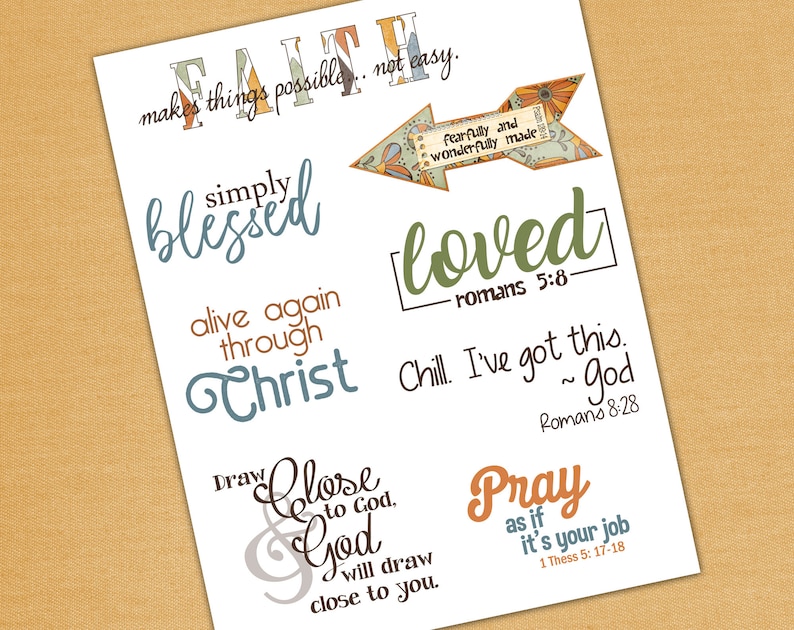 FAITH
makes things possible... not easy.
fearfully and
wonderfully made
Psalm 139:14
simply
blessed
loved
romans 5:8
alive again
through
Christ
Chill. I've got this.
~ God
Romans 8:28
Draw Close
to God,
& God
will draw
close to you.
Pray
as if
it's your job
1 Thess 5: 17-18